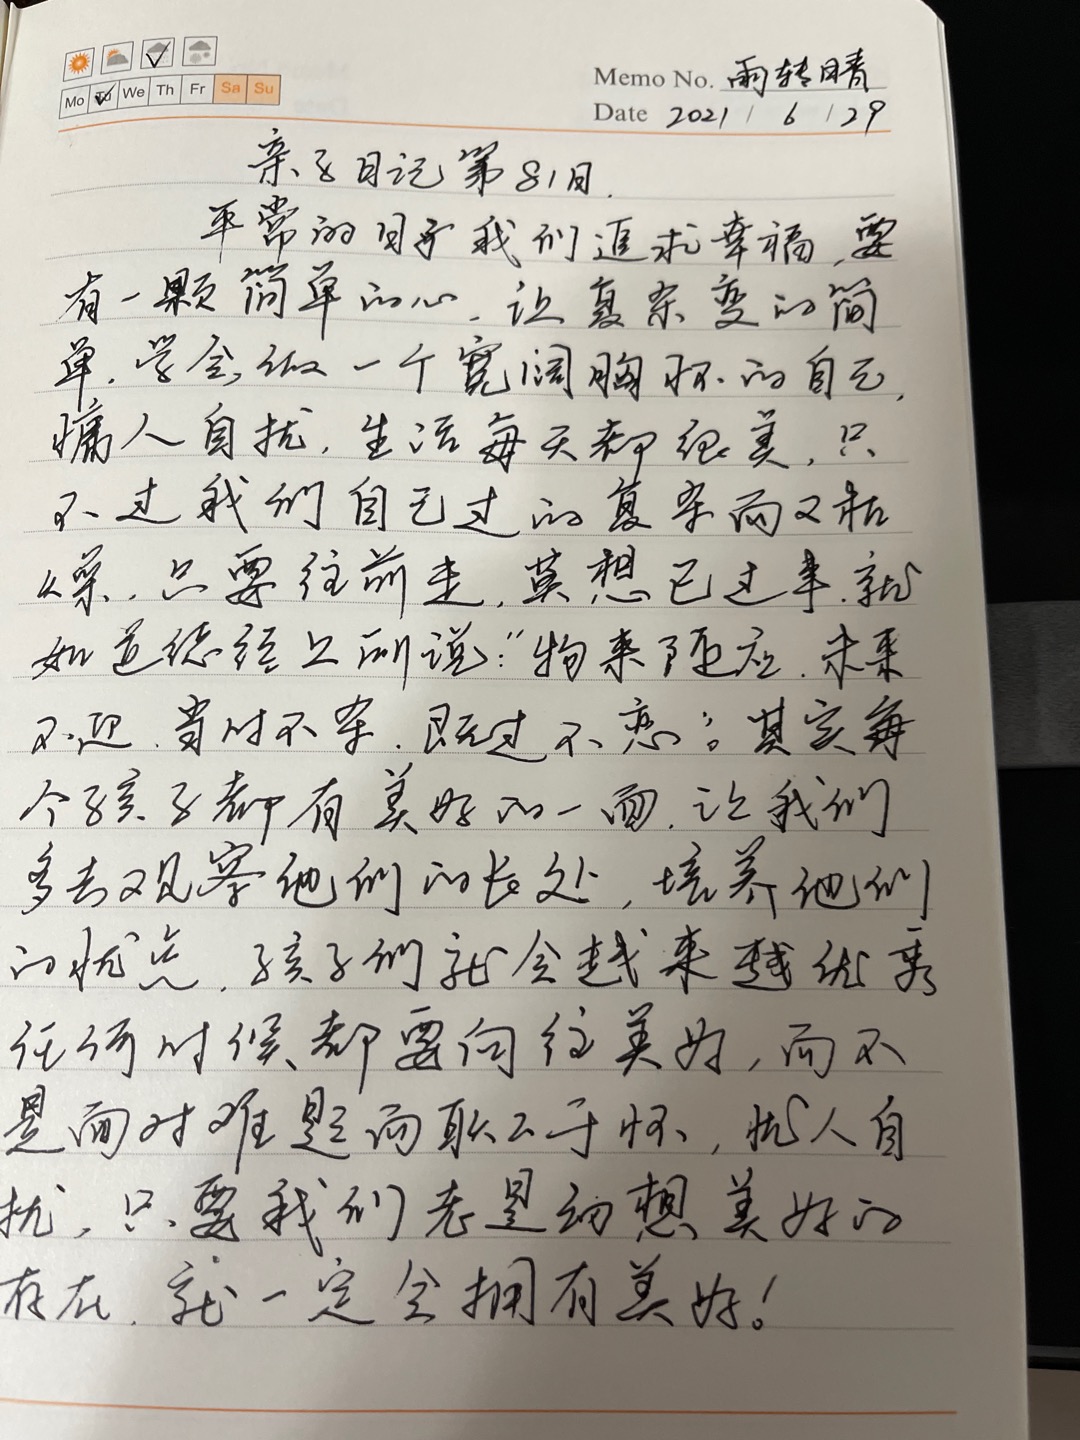 Memo No. 雨转晴
Mo Tu We Th Fr Sa Su
Date 2021 / 6 / 29
亲子日记第81日.
平常的日子我们追求幸福,要
有一颗简单的心,让复杂变的简
单,学会做一个宽阔胸怀的自己,
慵人自扰,生活每天都很美,只
不过我们自己过的复杂而又枯
燥,只要往前走,莫想已过事,就
如道德经上所说:"物来随应,未来
不迎,当时不杂,既过不恋";其实每
个孩子都有美好的一面,让我们
多去观察他们的长处,培养他们
的优点,孩子们就会越来越优秀
任何时候都要向往美好,而不
是面对难题而耿耿于怀,忧人自
扰,只要我们老是幻想美好的
存在,就一定会拥有美好!